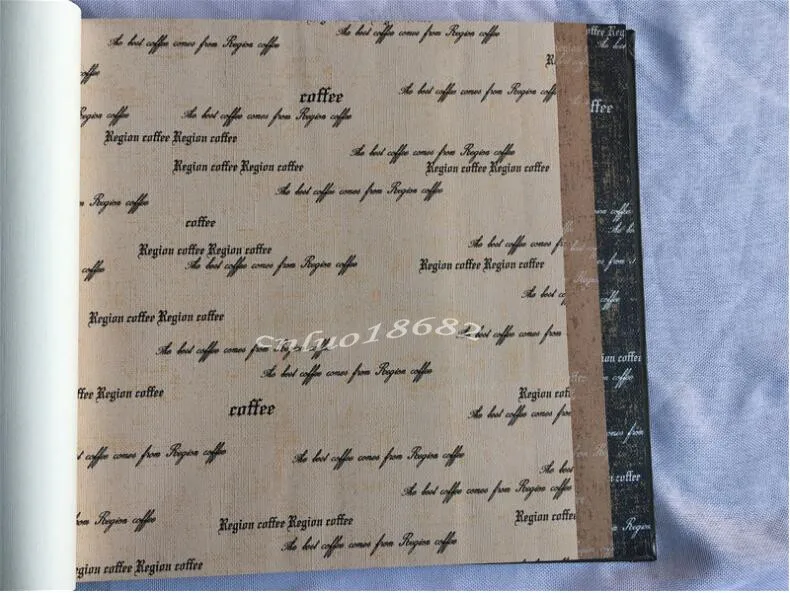 The best coffee comes from Region coffee
The best coffee comes from Region coffee
coffee
coffee
The best coffee comes from Region coffee
Region coffee
The best coffee comes from Region coffee
Region coffee Region coffee
The best coffee comes from Region coffee
Region coffee Region coffee
Region coffee Region coffee
The best coffee comes from Region coffee
Region coffee
coffee
The best coffee comes from
Region coffee Region coffee
coffee
The best coffee comes from Region coffee
Region coffee Region coffee
The best
Region coffee Region coffee
Snluo18682
The best coffee comes from
The best coffee comes from Region coffee
The best coffee comes from Region coffee
Region coffee
Region
coffee
The best coffee comes from
coffee comes from Region coffee
The best coffee comes from Region coffee
The best
The best coffee comes from Region coffee
from Region coffee
Region coffee Region coffee
Region coffee
The best coffee comes from Region coffee
Region coffee